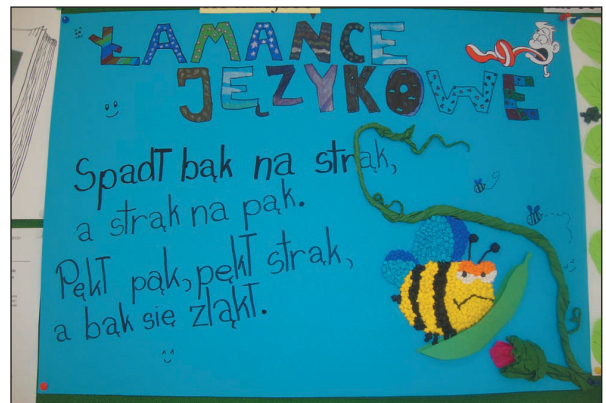 ŁAMAŃCE
JĘZYKOWE
Spadł bąk na strąk,
a strąk na pąk.
Pękł pąk, pękł strąk,
a bąk się zląkł.